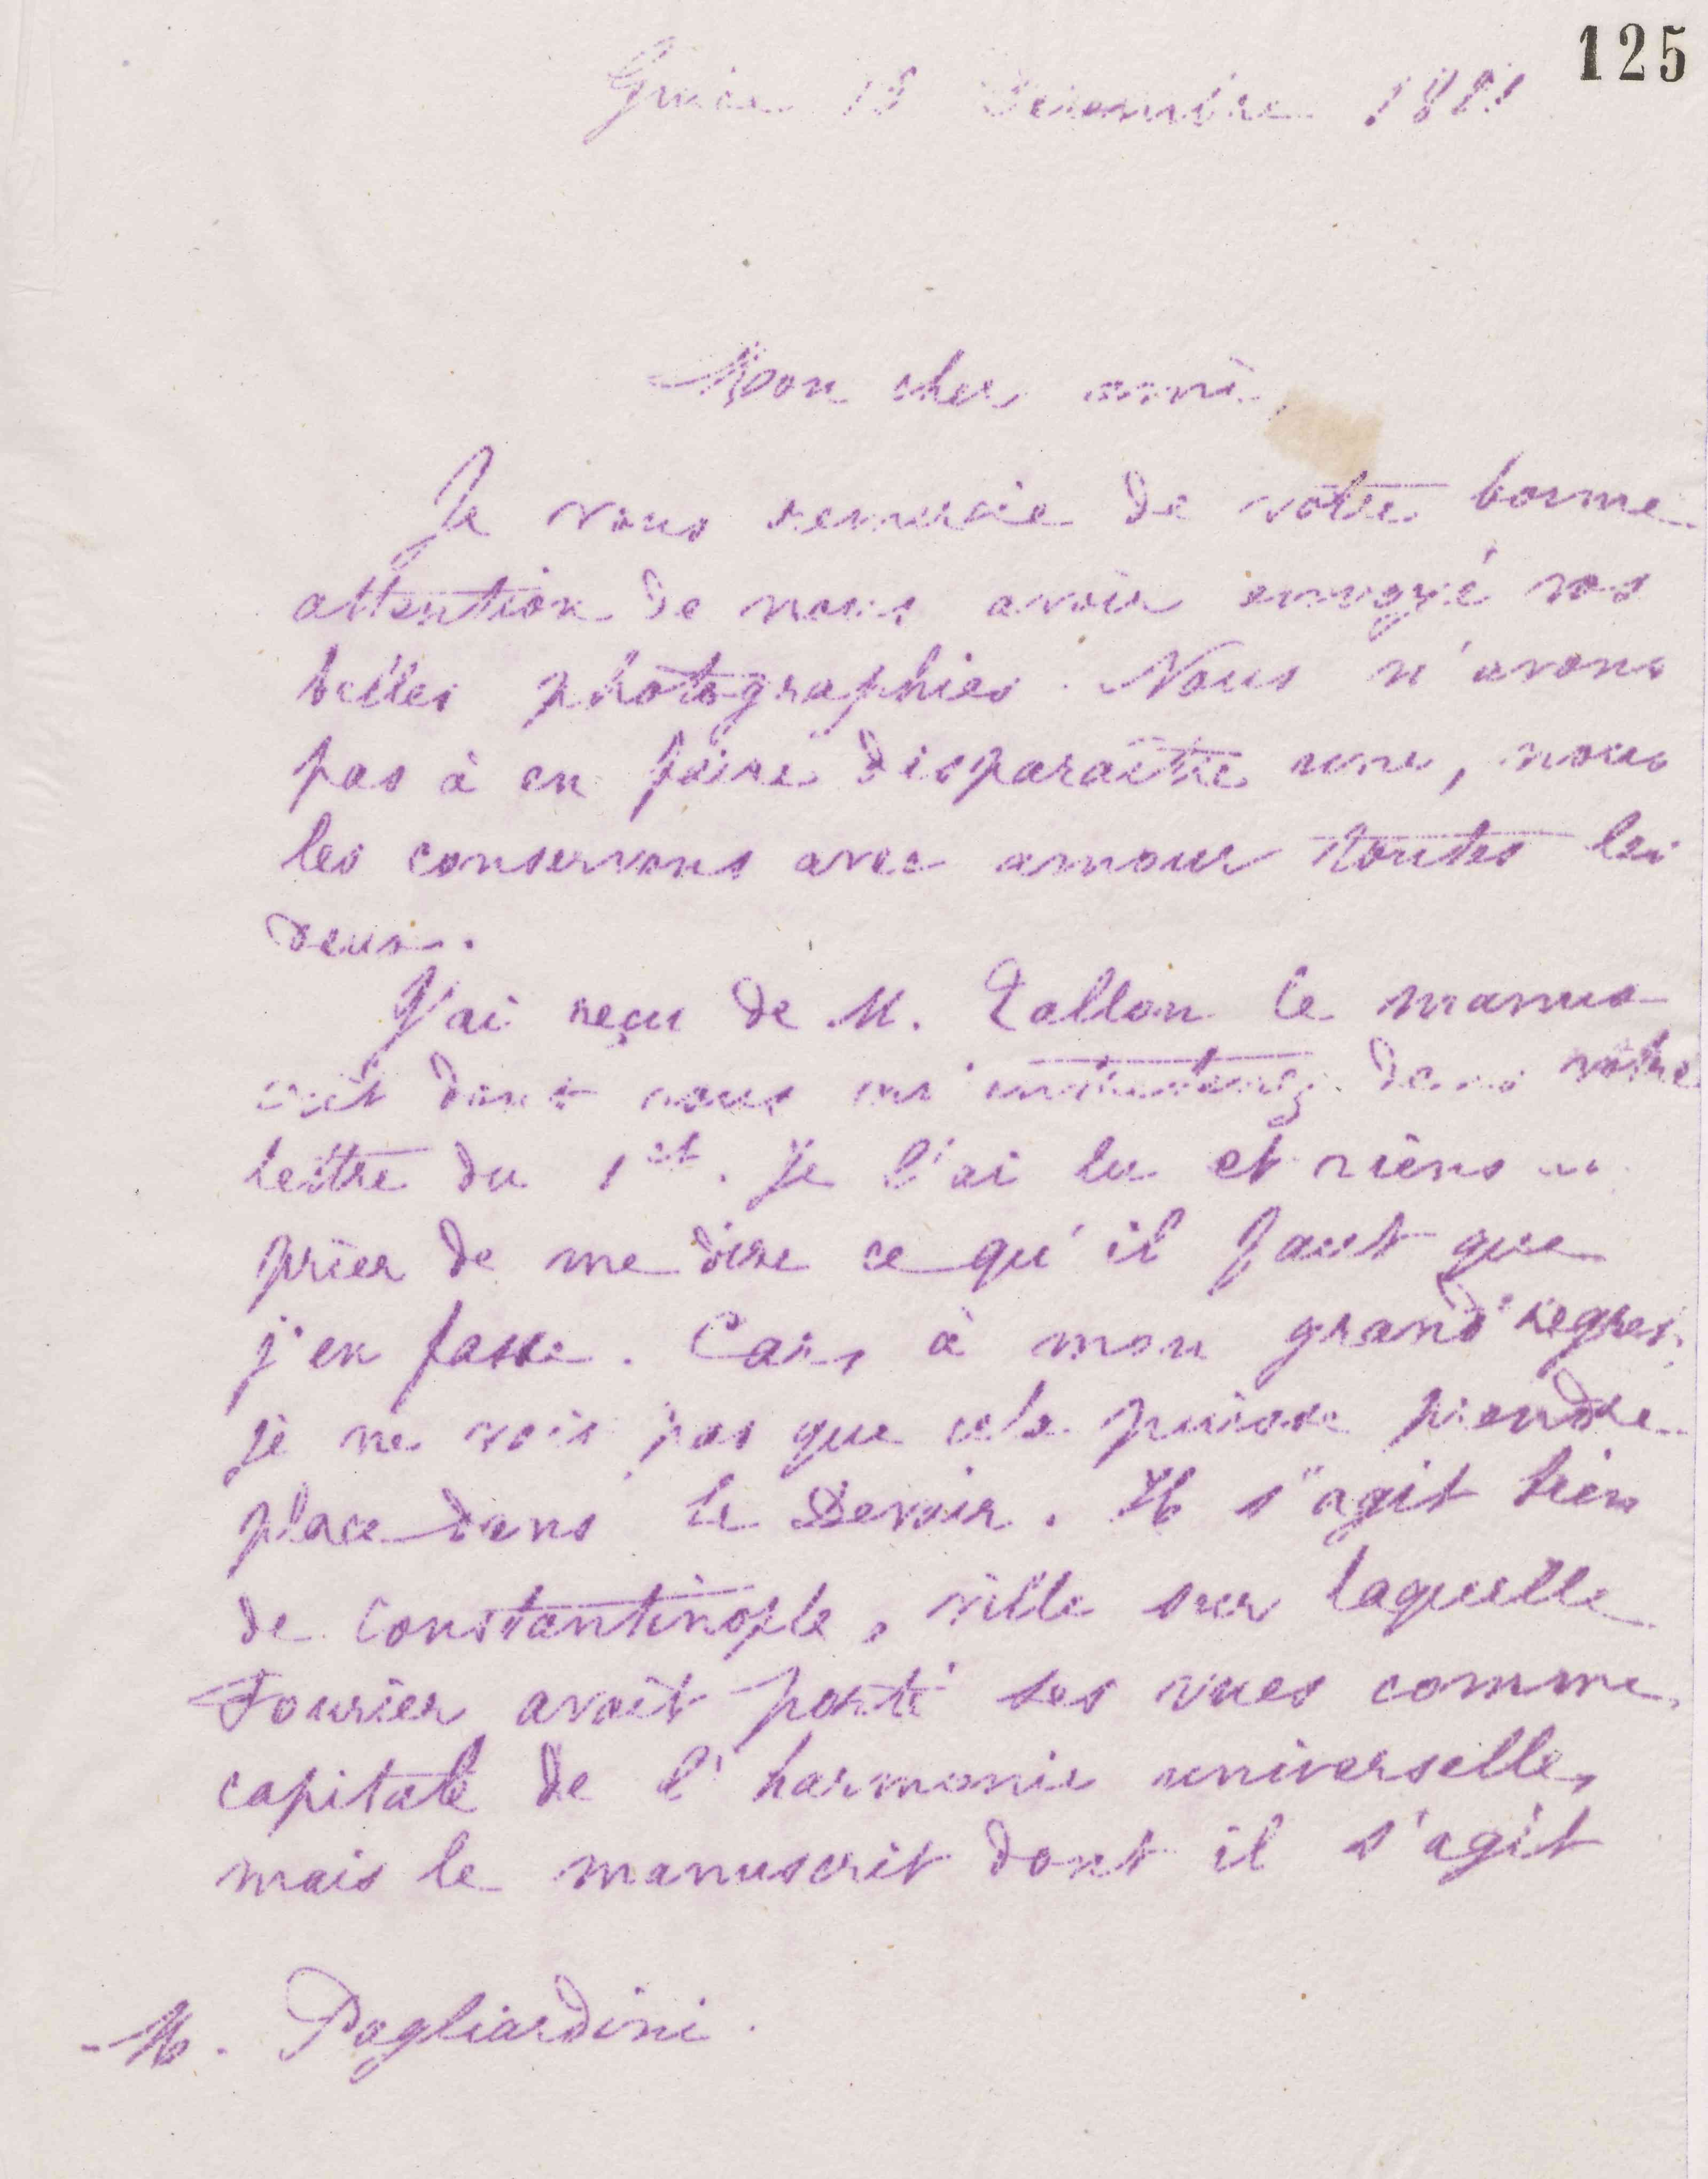 125
Guise 18 Décembre 1881
Mon cher ami,
Je vous remercie de votre bonne
attention de nous avoir envoyé vos
belles photographies. Nous n'avons
pas à en faire disparaître une, nous
les conservons avec amour toutes les
deux.
J'ai reçu de M. Tallon le manus-
crit dont vous m'entretenez dans votre
lettre du 1er. Je l'ai lu et viens
prier de me dire ce qu'il faut que
j'en fasse. Car, à mon grand regret,
je ne vois pas que cela puisse prendre
place dans le Devoir. Il s'agit bien
de Constantinople, ville sur laquelle
Fourier avait porté ses vues comme
capitale de l'harmonie universelle,
mais le manuscrit dont il s'agit
M. Pagliardini.